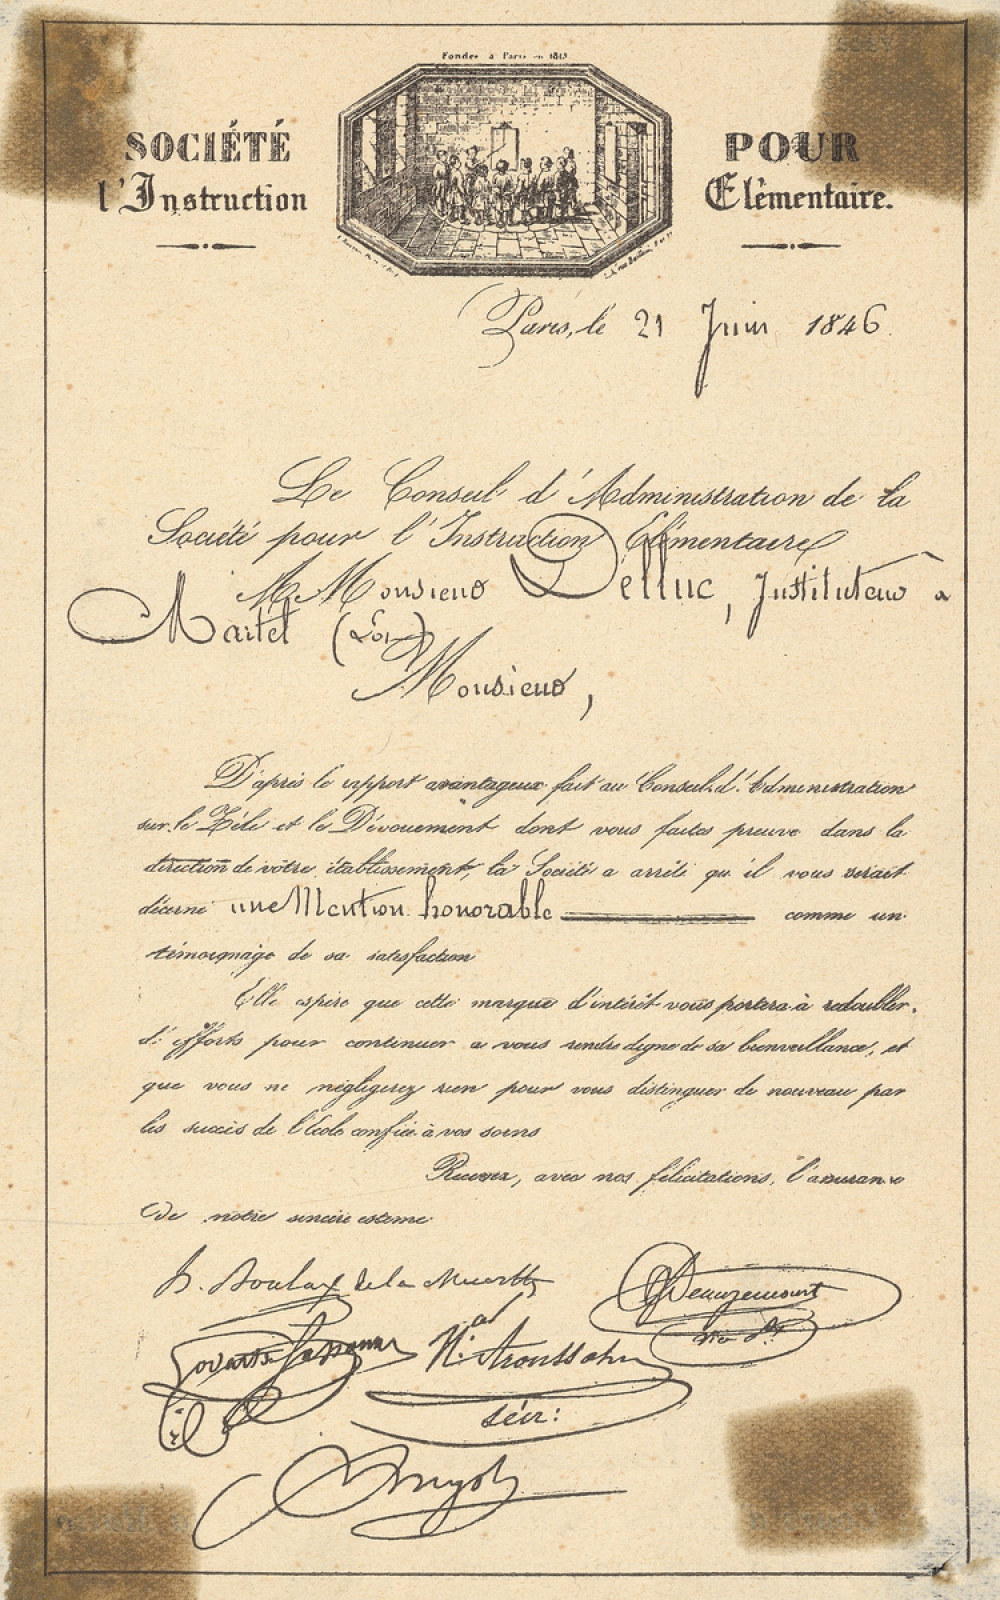 Fondée à Paris en 1815
SOCIÉTÉ POUR
l'Instruction Elémentaire.
Paris, le 21 Juin 1846
Le Conseil d'Administration de la
Société pour l'Instruction Elémentaire
A Monsieur Delluc, Instituteur à
Martel (Lot)
Monsieur,
D'après le rapport avantageux fait au Conseil d'Administration
sur le Zèle et le Dévouement dont vous faites preuve dans la
direction de votre établissement, la Société a arrêté qu'il vous serait
décerné une Mention honorable comme un
témoignage de sa satisfaction
Elle espère que cette marque d'intérêt vous portera à redoubler
d'efforts pour continuer a vous rendre digne de sa bienveillance, et
que vous ne négligerez rien pour vous distinguer de nouveau par
les succès de l'école confiée à vos soins
Recevez, avec nos félicitations, l'assurance
de notre sincère estime
H. Boulay de la Meurthe
N. Troussahn
Secr: